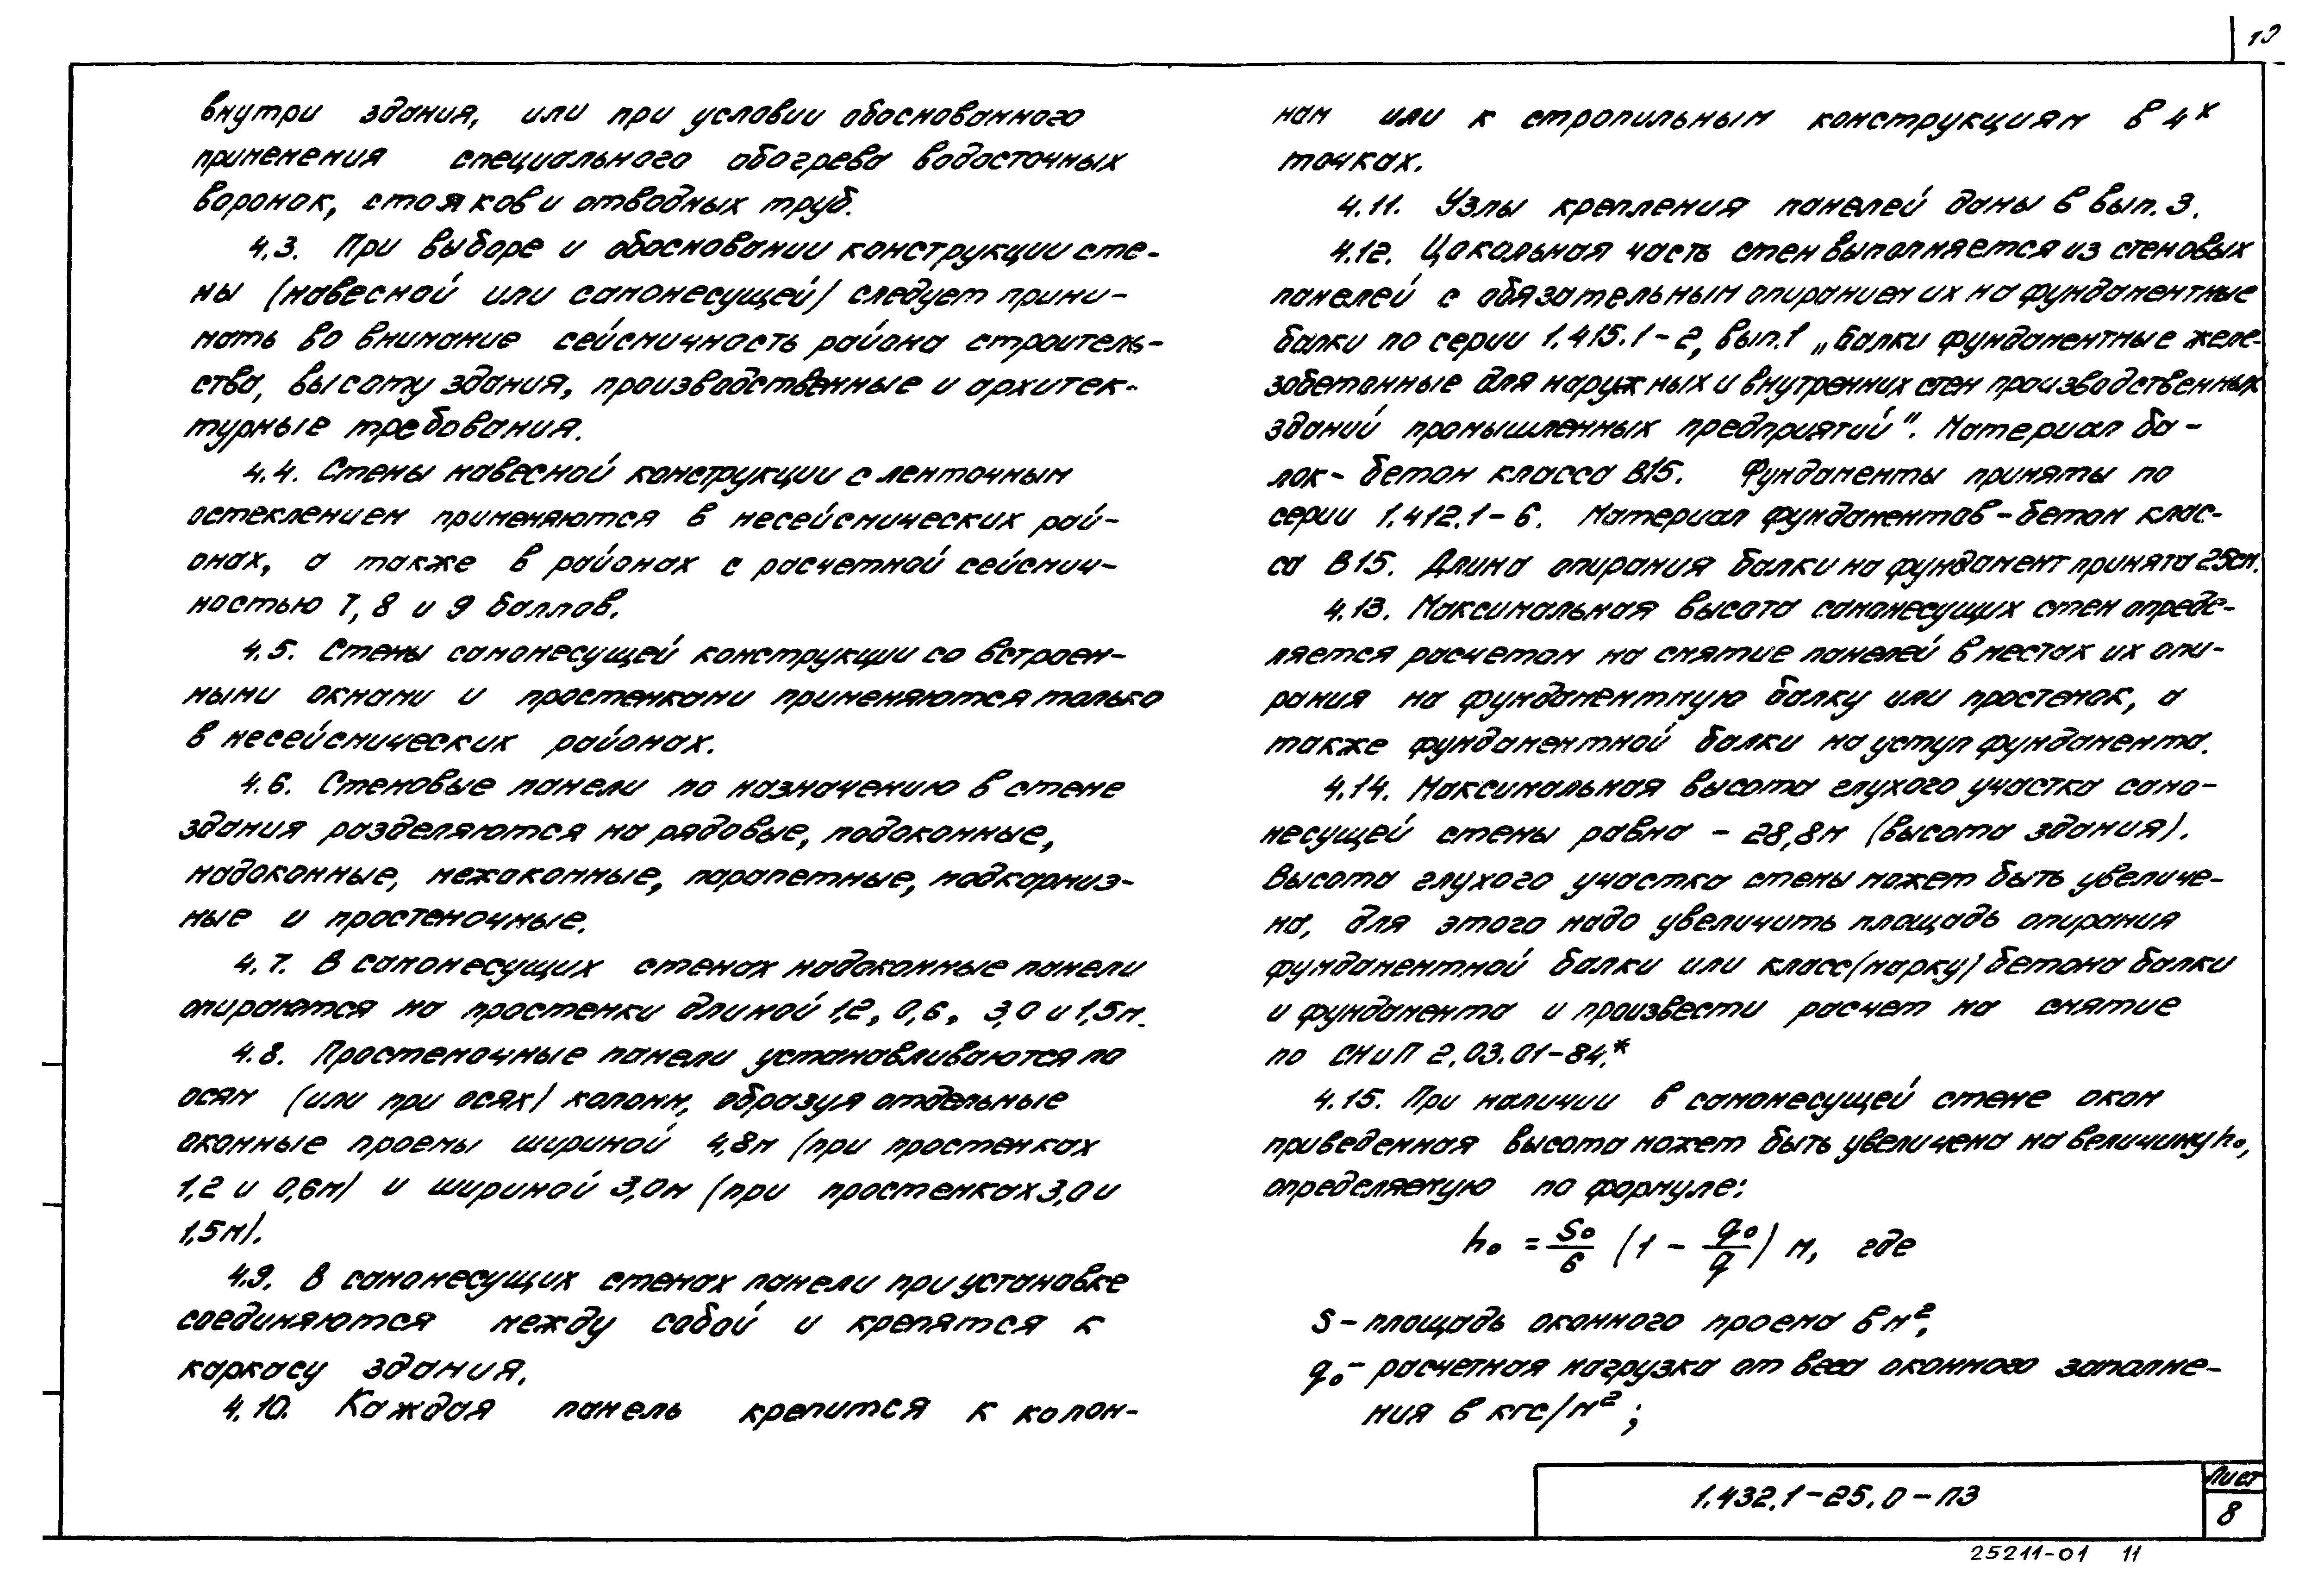 10
внутри здания, или при условии обоснованного
применения специального обогрева водосточных
воронок, стояков и отводных труб.
4.3. При выборе и обосновании конструкции сте-
ны (навесной или самонесущей) следует прини-
мать во внимание сейсмичность района строитель-
ства, высоту здания, производственные и архитек-
турные требования.
4.4. Стены навесной конструкции с ленточным
остеклением применяются в несейсмических рай-
онах, а также в районах с расчетной сейсмич-
ностью 7, 8 и 9 баллов.
4.5. Стены самонесущей конструкции со встроен-
ными окнами и простенками применяются только
в несейсмических районах.
4.6. Стеновые панели по назначению в стене
здания разделяются на рядовые, подоконные,
надоконные, межоконные, парапетные, подкарниз-
ные и простеночные.
4.7. В самонесущих стенах надоконные панели
опираются на простенки длиной 1,2, 0,6, 3,0 и 1,5м.
4.8. Простеночные панели устанавливаются по
осям (или при осях) колонн, образуя отдельные
оконные проемы шириной 4,8м (при простенках
1,2 и 0,6м) и шириной 3,0м (при простенках 3,0 и
1,5м).
4.9. В самонесущих стенах панели при установке
соединяются между собой и крепятся к
каркасу здания.
4.10. Каждая панель крепится к колон-
нам или к стропильным конструкциям в 4х
точках.
4.11. Узлы крепления панелей даны в вып. 3.
4.12. Цокольная часть стен выполняется из стеновых
панелей с обязательным опиранием их на фундаментные
балки по серии 1.415.1-2, вып.1 „Балки фундаментные желе-
зобетонные для наружных и внутренних стен производственных
зданий промышленных предприятий". Материал ба-
лок- бетон класса В15. Фундаменты приняты по
серии 1.412.1-6. Материал фундаментов - бетон клас-
са В15. Длина опирания балки на фундамент принята 25см.
4.13. Максимальная высота самонесущих стен опреде-
ляется расчетом на смятие панелей в местах их опи-
рания на фундаментную балку или простенок, а
также фундаментной балки на уступ фундамента.
4.14. Максимальная высота глухого участка само-
несущей стены равна - 28,8м (высота здания).
Высота глухого участка стены может быть увеличе-
на, для этого надо увеличить площадь опирания
фундаментной балки или класс(марку) бетона балки
и фундамента и произвести расчет на смятие
по СНиП 2.03.01-84.*
4.15. При наличии в самонесущей стене окон
приведенная высота может быть увеличена на величину h₀,
определяемую по формуле:
h₀ = S₀/6 (1 - q₀/q) м, где
S - площадь оконного проема в м²;
q₀ - расчетная нагрузка от веса оконного заполне-
ния в кгс/м²;
1.432.1-25.0-ПЗ
Лист
8
25211-01 11